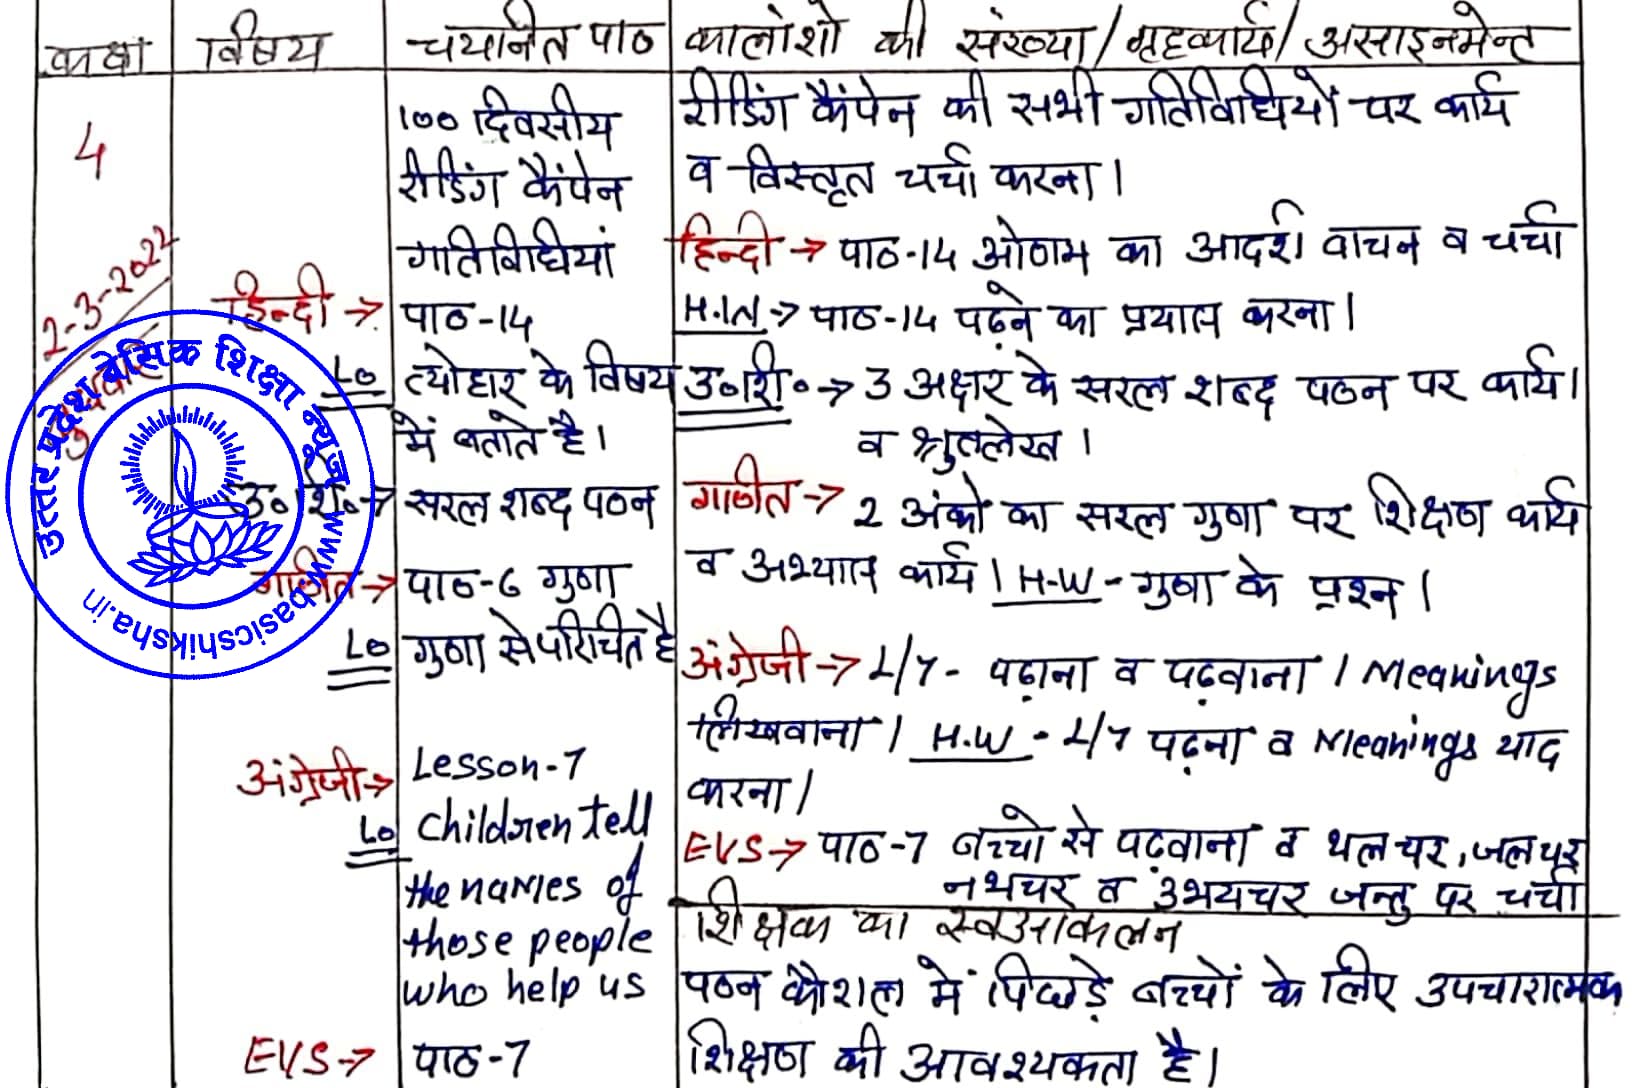 कक्षा विषय चयनित पाठ कालांशो की संख्या/गृहकार्य/असाइनमेन्ट
4
2-3-2022
100 दिवसीय
रीडिंग कैंपेन
गतिविधियां
हिन्दी → पाठ-14
Lo त्योहार के विषय
में बताते है।
उ० शि० → सरल शब्द पठन
गणित → पाठ-6 गुणा
Lo गुणा से परिचित है
अंग्रेजी → Lesson-7
Lo children tell
the names of
those people
who help us
EVS → पाठ-7
रीडिंग कैंपेन की सभी गतिविधियों पर कार्य
व विस्तृत चर्चा करना।
हिन्दी → पाठ-14 ओणम का आदर्श वाचन व चर्चा
H.W → पाठ-14 पढ़ने का प्रयास करना।
उ०शि० → 3 अक्षर के सरल शब्द पठन पर कार्य।
व श्रुतलेख।
गणित → 2 अंको का सरल गुणा पर शिक्षण कार्य
व अभ्यास कार्य। H-W - गुणा के प्रश्न।
अंग्रेजी → L/7 - पढ़ाना व पढ़वाना। Meanings
लिखवाना। H.W - L/7 पढ़ना व Meanings याद
करना।
EVS → पाठ-7 बच्चो से पढ़वाना व थलचर, जलचर
नभचर व उभयचर जन्तु पर चर्चा
शिक्षक का स्वआकलन
पठन कौशल में पिछड़े बच्चों के लिए उपचारात्मक
शिक्षण की आवश्यकता है।
उत्तर प्रदेश बेसिक शिक्षा न्यूज
www.basicshiksha.in